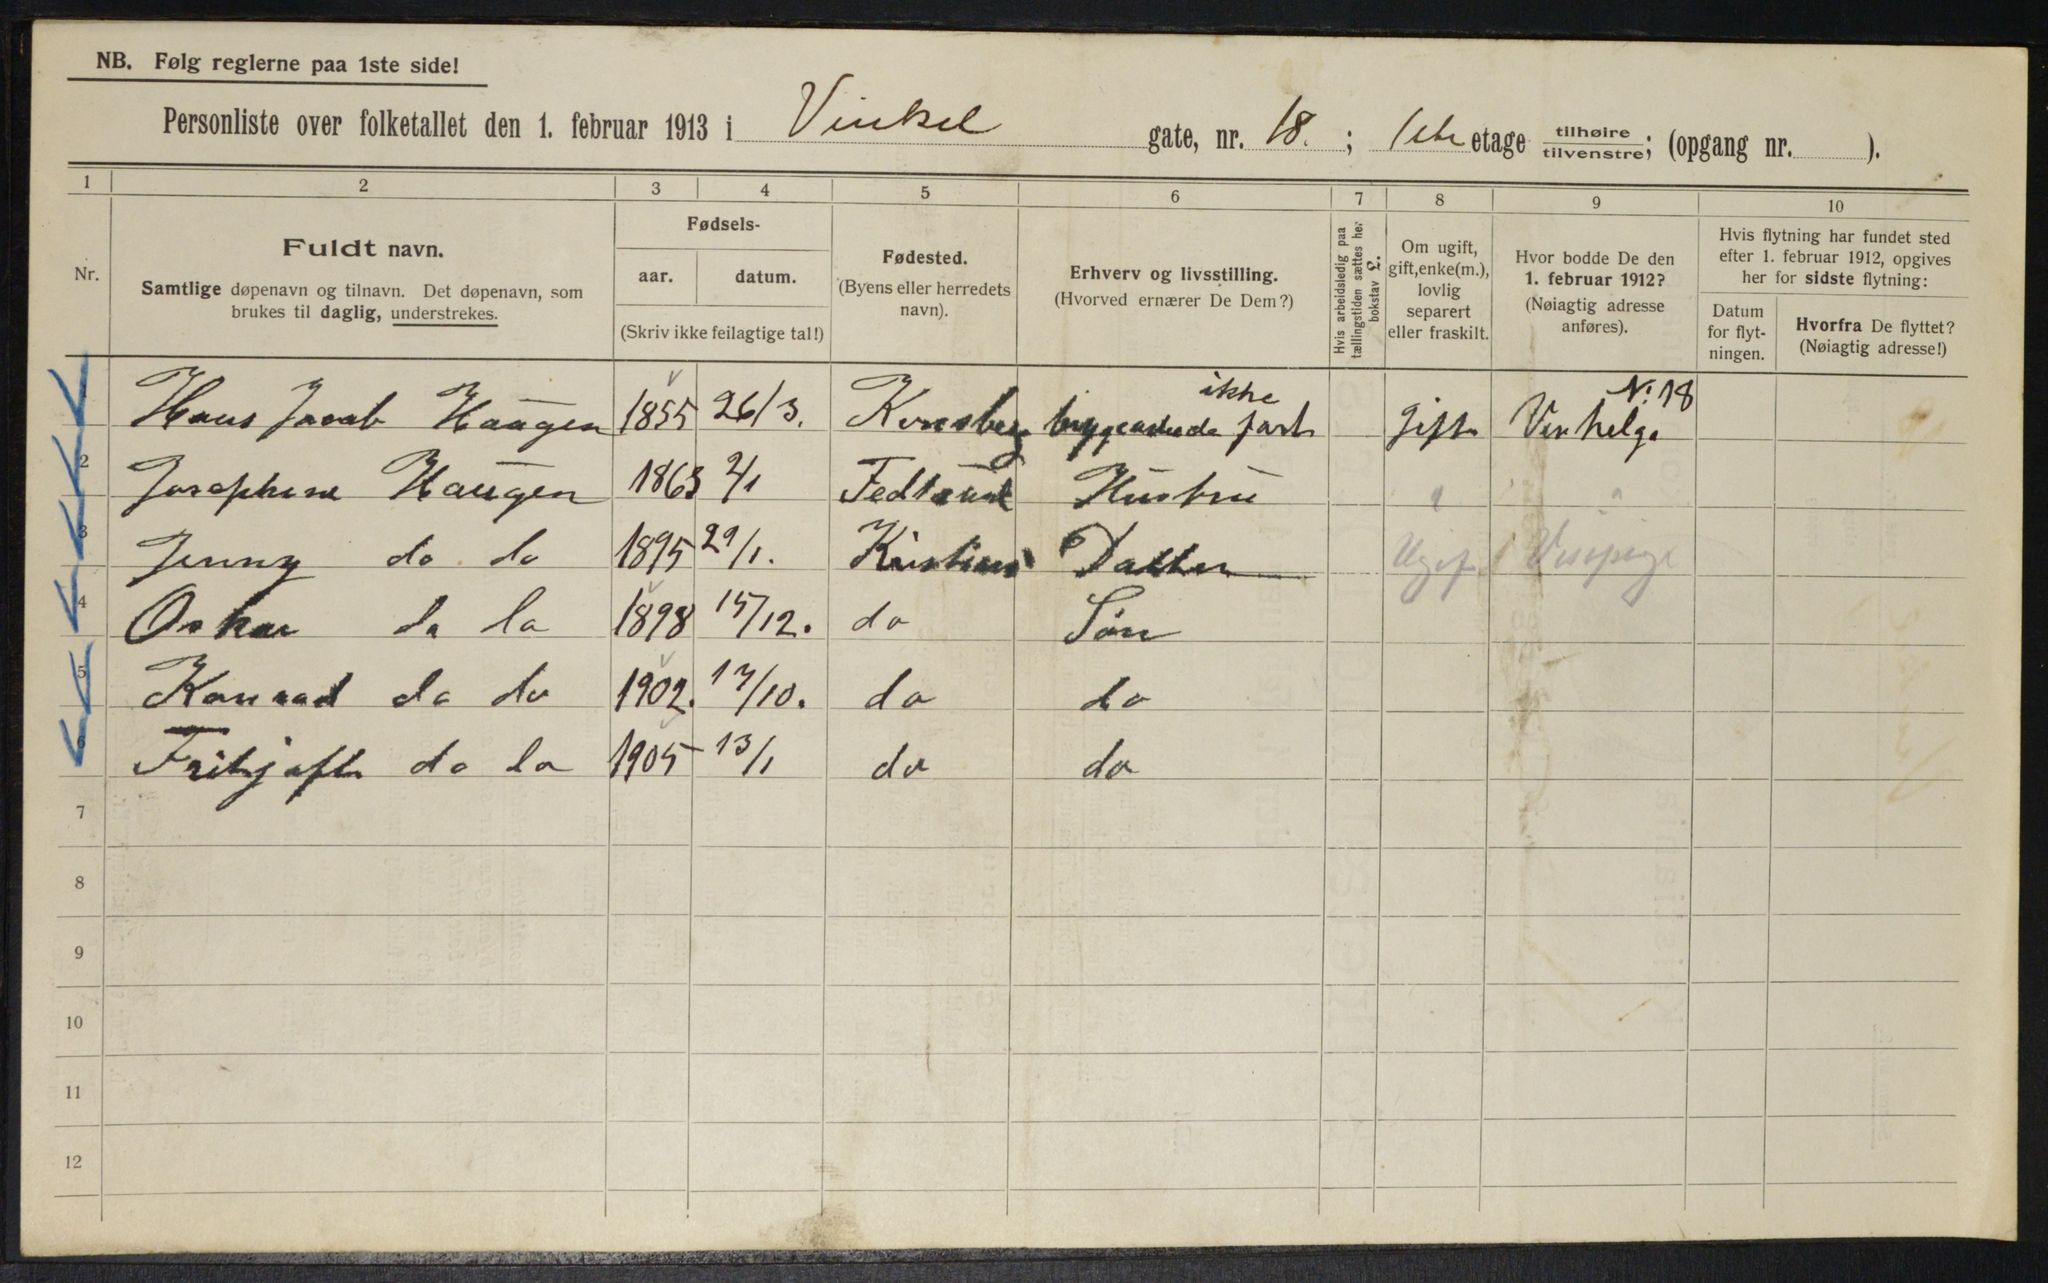 NB. Følg reglerne paa 1ste side!
Personliste over folketallet den 1. februar 1913 i Vinkel gate, nr. 18. ; 1ste etage tilhøire tilvenstre; (opgang nr. ).
1 2 3 4 5 6 7 8 9 10
Nr.
Fuldt navn.
Samtlige døpenavn og tilnavn. Det døpenavn, som
brukes til daglig, understrekes.
Fødsels-
aar. datum.
(Skriv ikke feilagtige tal!)
Fødested.
(Byens eller herredets
navn).
Erhverv og livsstilling.
(Hvorved ernærer De Dem?)
Hvis arbeidsledig paa
tællingstiden sættes her
bokstav L.
Om ugift,
gift, enke(m.),
lovlig
separert
eller fraskilt.
Hvor bodde De den
1. februar 1912?
(Nøiagtig adresse
anføres).
Hvis flytning har fundet sted
efter 1. februar 1912, opgives
her for sidste flytning:
Datum
for flyt-
ningen.
Hvorfra De flyttet?
(Nøiagtig adresse!)
Hans Jacob Haugen 1855 26/3. Konsberg ikke fast gift Vinkelg. No. 18
2 Josephine Haugen 1863 2/1 Hustru " "
3 Jenny do do 1895 29/1. Kristiania Datter Ugift
4 Oskar do do 1898 15/12. do Søn
5 Konrad do do 1902. 17/10. do do
6 Frithjoft do do 1905 13/1 do do
7
8
9
10
11
12